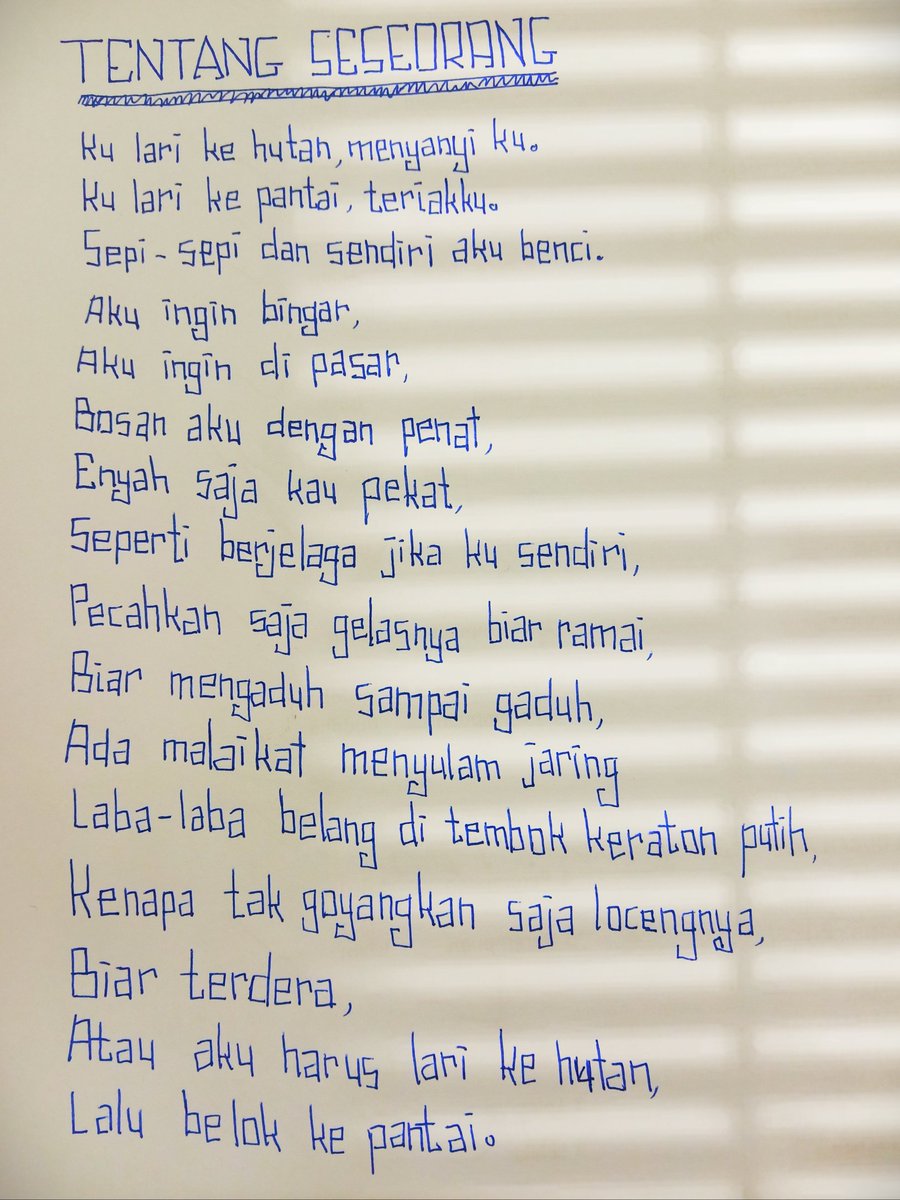 TENTANG SESEORANG
Ku lari ke hutan, menyanyi ku.
Ku lari ke pantai, teriakku.
Sepi - sepi dan sendiri aku benci.
Aku ingin bingar,
Aku ingin di pasar,
Bosan aku dengan penat,
Enyah saja kau pekat,
Seperti berjelaga jika ku sendiri,
Pecahkan saja gelasnya biar ramai,
Biar mengaduh sampai gaduh,
Ada malaikat menyulam jaring
Laba-laba belang di tembok keraton putih,
Kenapa tak goyangkan saja locengnya,
Biar terdera,
Atau aku harus lari ke hutan,
Lalu belok ke pantai.